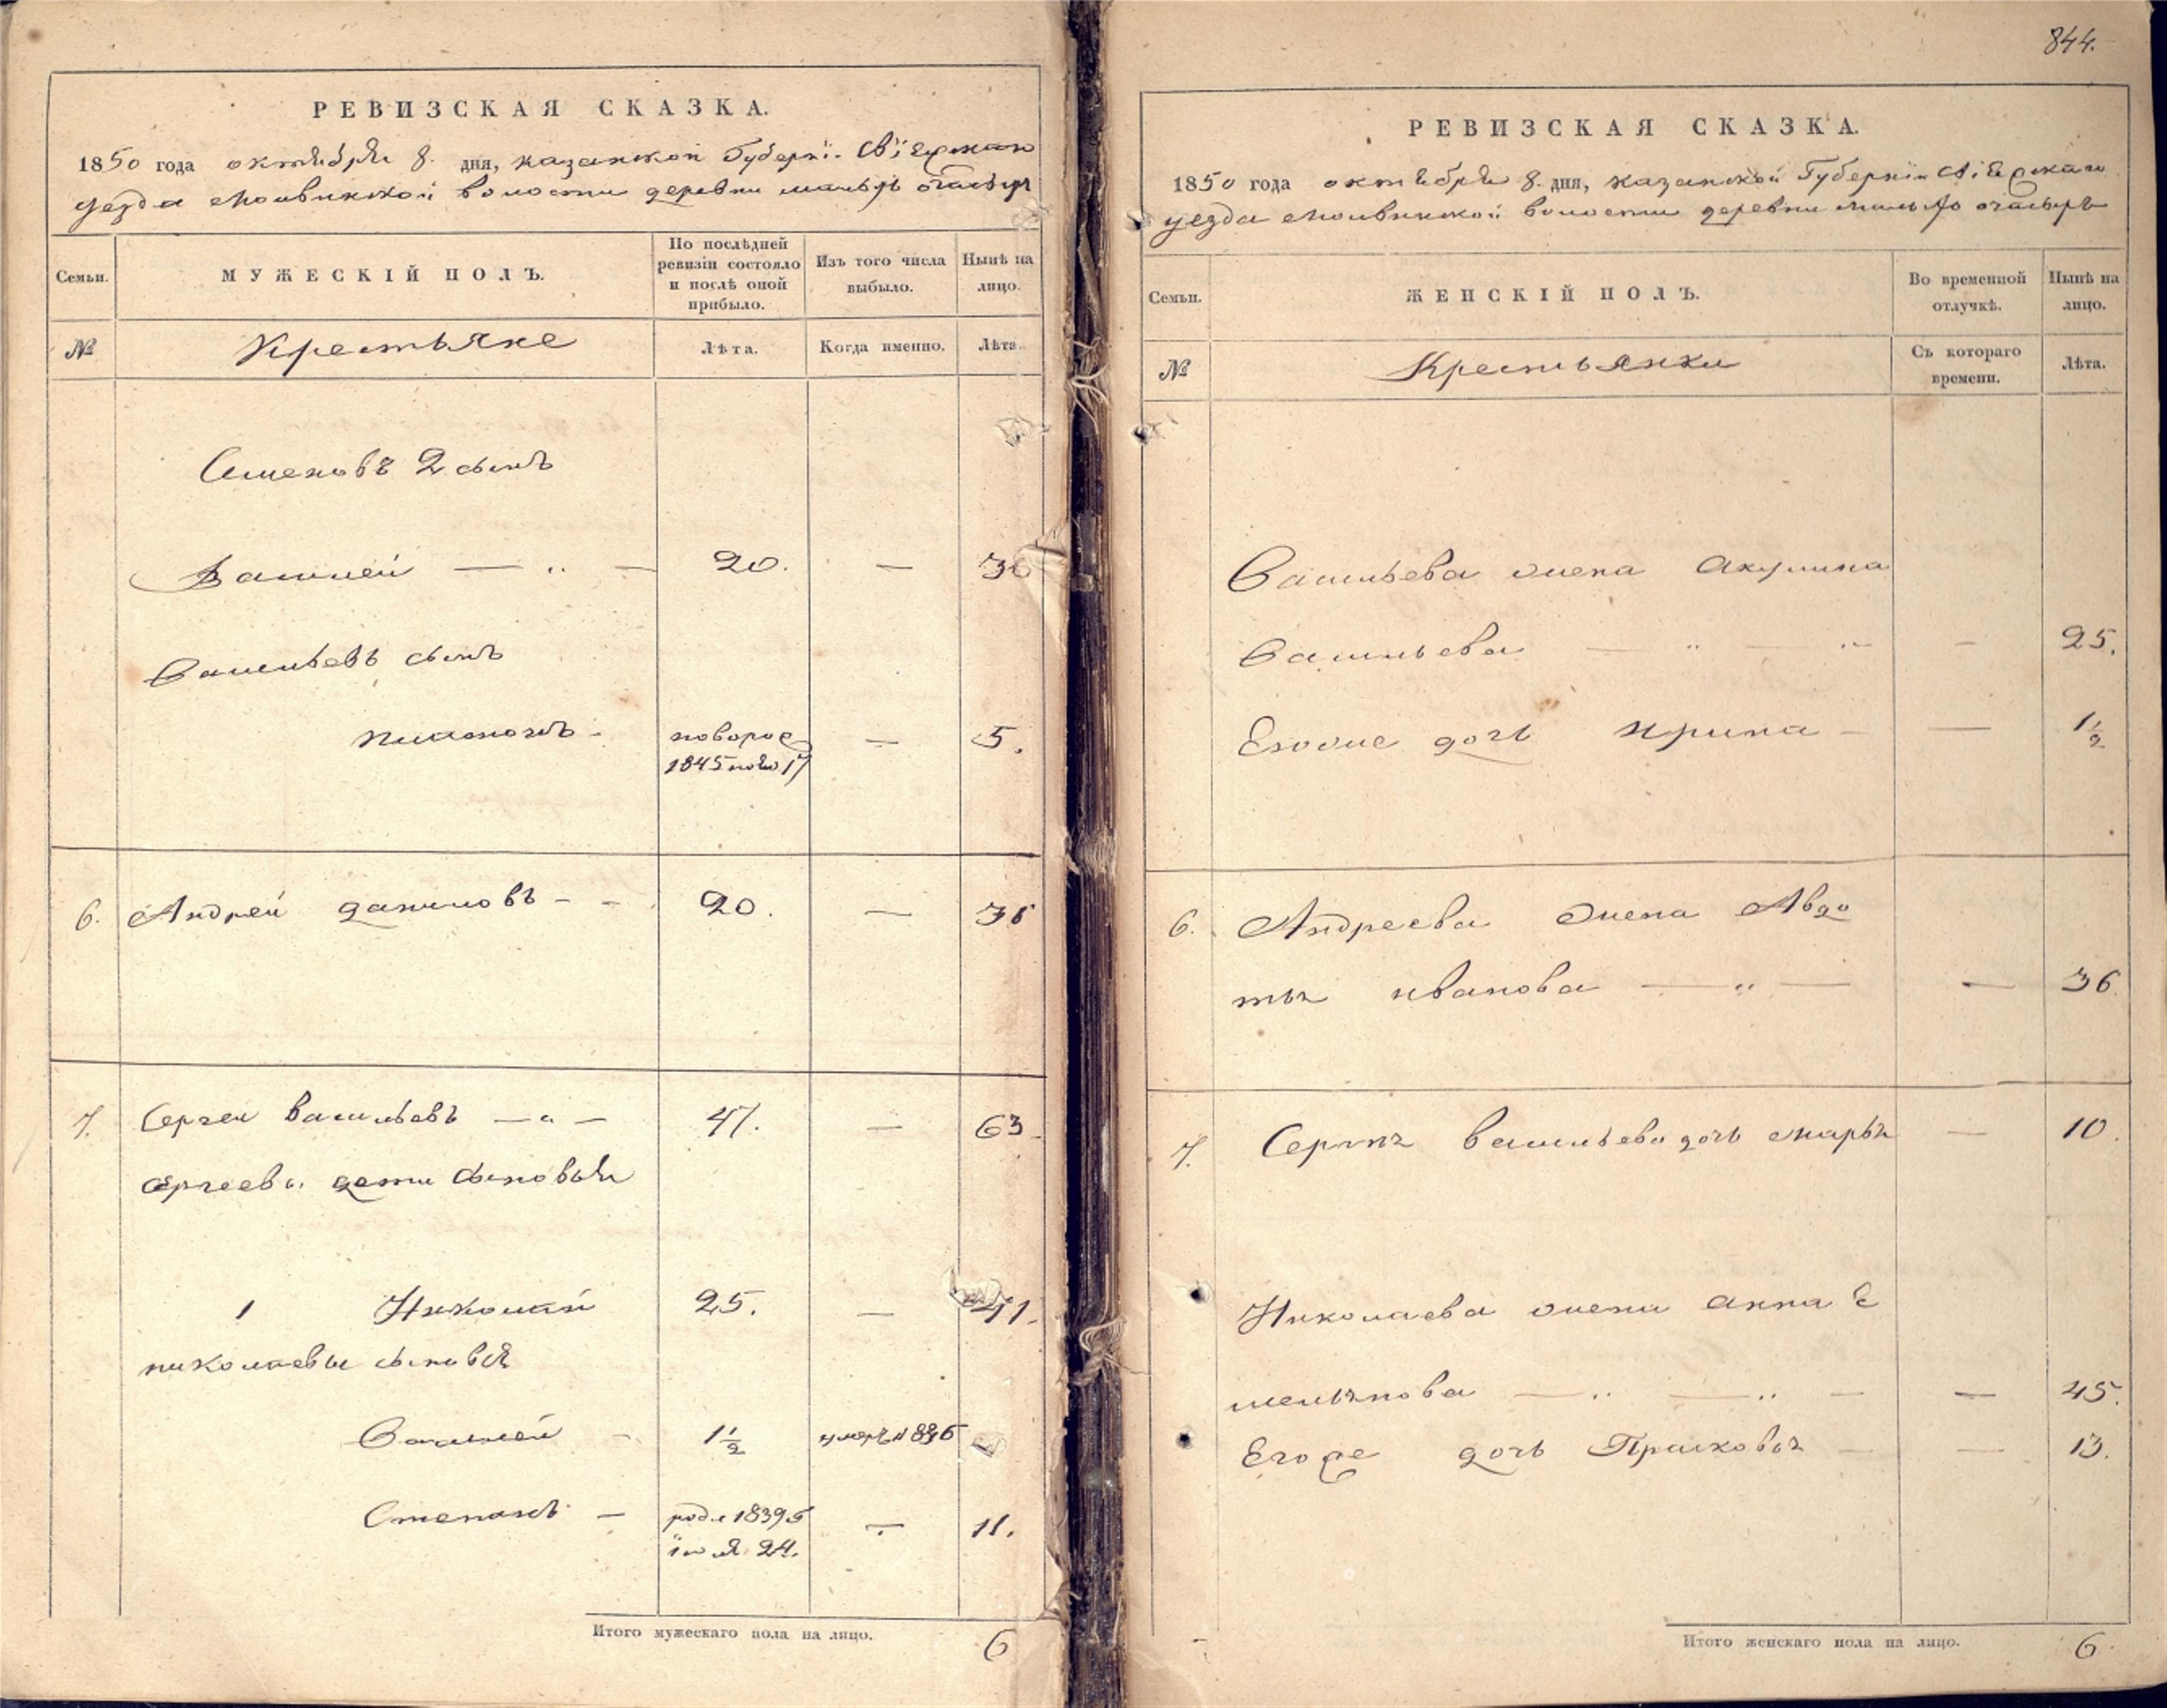 РЕВИЗСКАЯ СКАЗКА.
1850 года октября 8. дня, казанской Губернїи Свїяжскаго
уезда волости деревни малыхъ
Семьи.
МУЖЕСКІЙ ПОЛЪ.
По послѣдней ревизіи состояло и послѣ оной прибыло.
Изъ того числа выбыло.
Нынѣ на лицо.
№
Крестьяне
Лѣта.
Когда именно.
Лѣта.
Семеновъ 2 сынъ
Василей — „ — 20. —
Васильевъ сынъ
Платонъ - новорое — 5.
1845
6. Андрей даниловъ - - 20. —
7. Сергеи Васильевъ — „ — 47. — 63
Сергеевы дети сыновья
1 Николай 25. — 41.
николаевы сыновья
Василей - 1 1/2 умеръ
Степанъ — родл 1839 — 11.
їюля 24.
Итого мужескаго пола на лицо. 6
844.
РЕВИЗСКАЯ СКАЗКА.
1850 года октября 8. дня, казанской Губернїи Свїяжскаго
уезда волости деревни малыхъ
Семьи.
ЖЕНСКІЙ ПОЛЪ.
Во временной отлучкѣ.
Нынѣ на лицо.
№
Крестьянки
Съ котораго времени.
Лѣта.
Васильева жена Акулина
Васильева — „ — „ - 25.
Еговже дочь Ирина - — 1 1/2
6. Андреева жена Авдо
тья иванова — „ — — 36
7. Васильева дочь марья — 10.
Николаева жена анна е
мельянова — „ — „ — — 45.
Егоже дочь Прасковья — — 13.
Итого женскаго пола на лицо. 6.